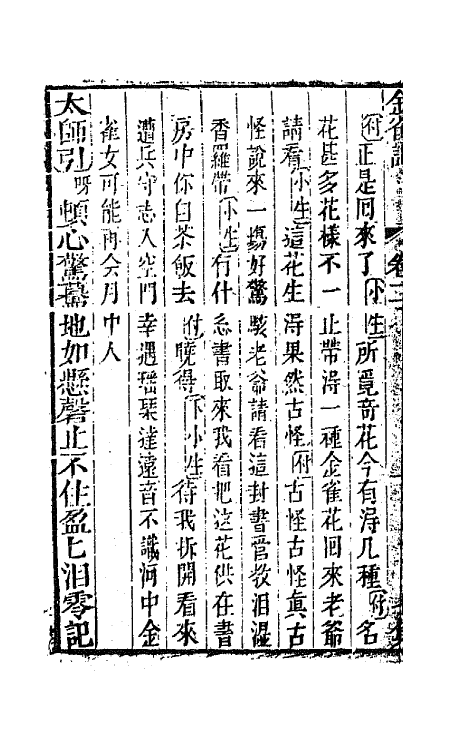 金雀記 卷二
付正是回來了小生所覓奇花今有淂几種付名
花甚多花樣不一止帶淂一種金雀花回來老爺
請看小生這花生淂果然古怪付古怪古怪真古
怪說來一塲好驚駭老爺請看這封書管教泪湿
香羅帶小生有什么書取來我看把这花供在書
房中你自茶飯去付曉得下小生待我拆開看來
遭兵守志入空門 幸遇瑶琹達遠音 不識河中金
雀女 可能再会月中人
太師引呀頓心驚驀地如懸磬止不住盈匕泪零記